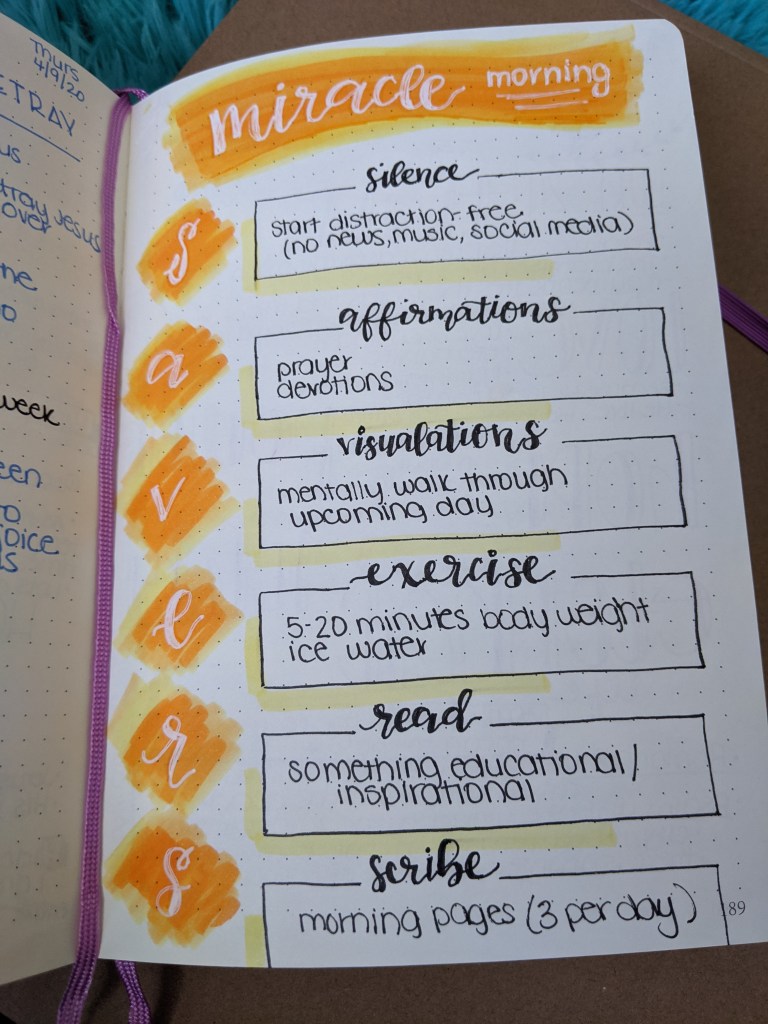 Thurs
4/9/20
ETRAY
us
tray Jesus
over
me
week
een
to
oice
miracle morning
s
silence
start distraction-free
(no news, music, social media)
a
affirmations
prayer
devotions
v
visualations
mentally walk through
upcoming day
e
exercise
5-20 minutes body weight
ice water
r
read
something educational/
inspirational
s
scribe
morning pages (3 per day)
189